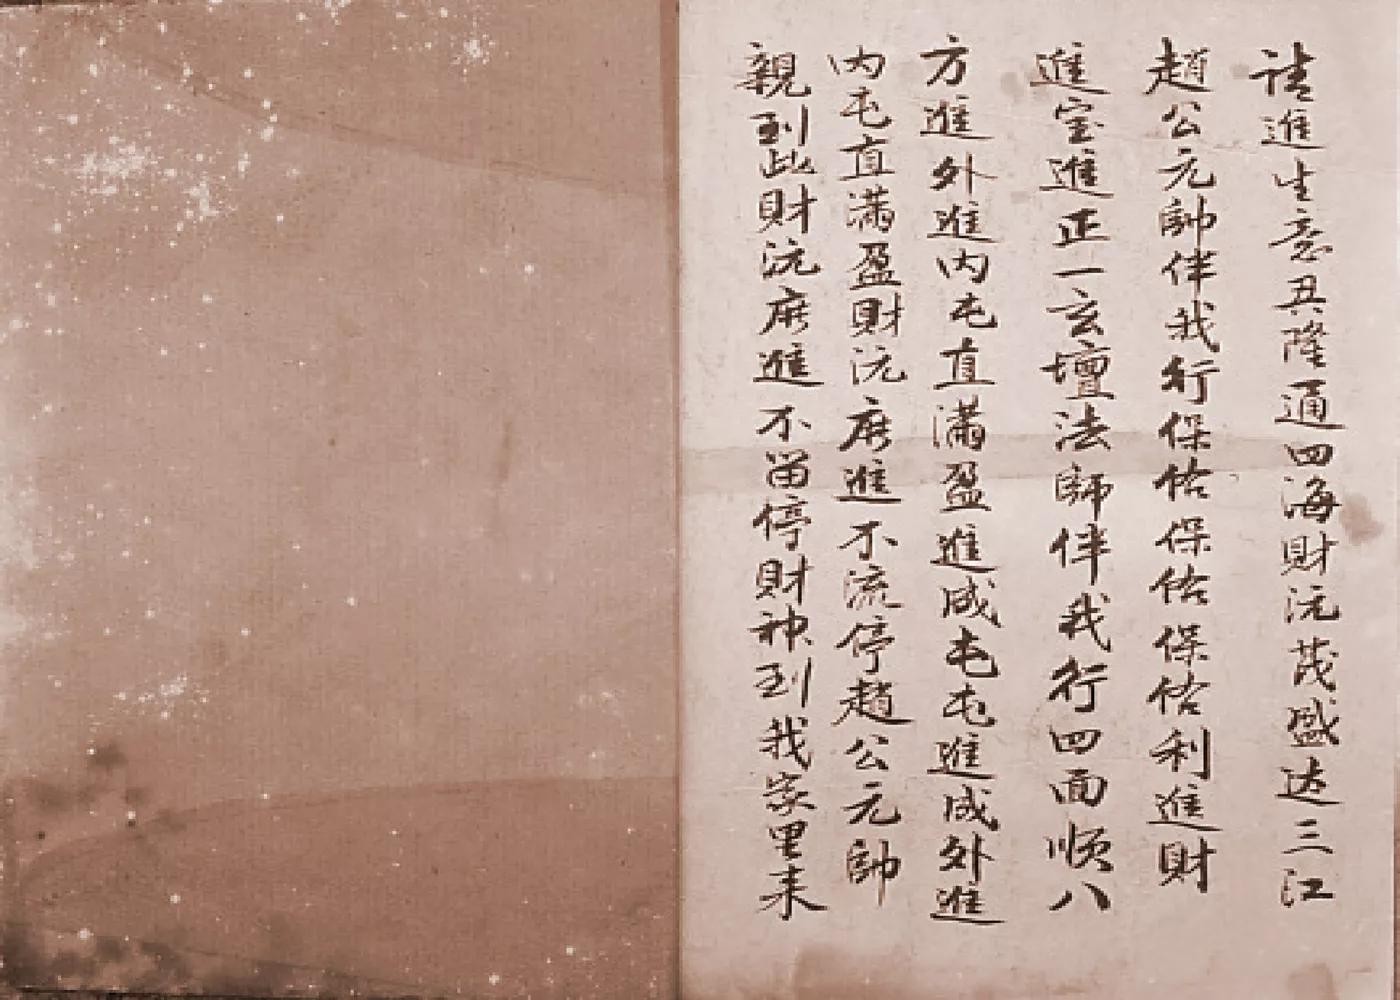 请進生意丑隆通四海財沅茂盛达三江
趙公元帥伴我行保佑保佑保佑利進財
進宝進正一玄壇法師伴我行四面順八
方進外進内屯直滿盈進成屯屯進成外進
内屯直滿盈財沅庥進不流停趙公元帥
親到此財沅庥進不留停財神到我家里来